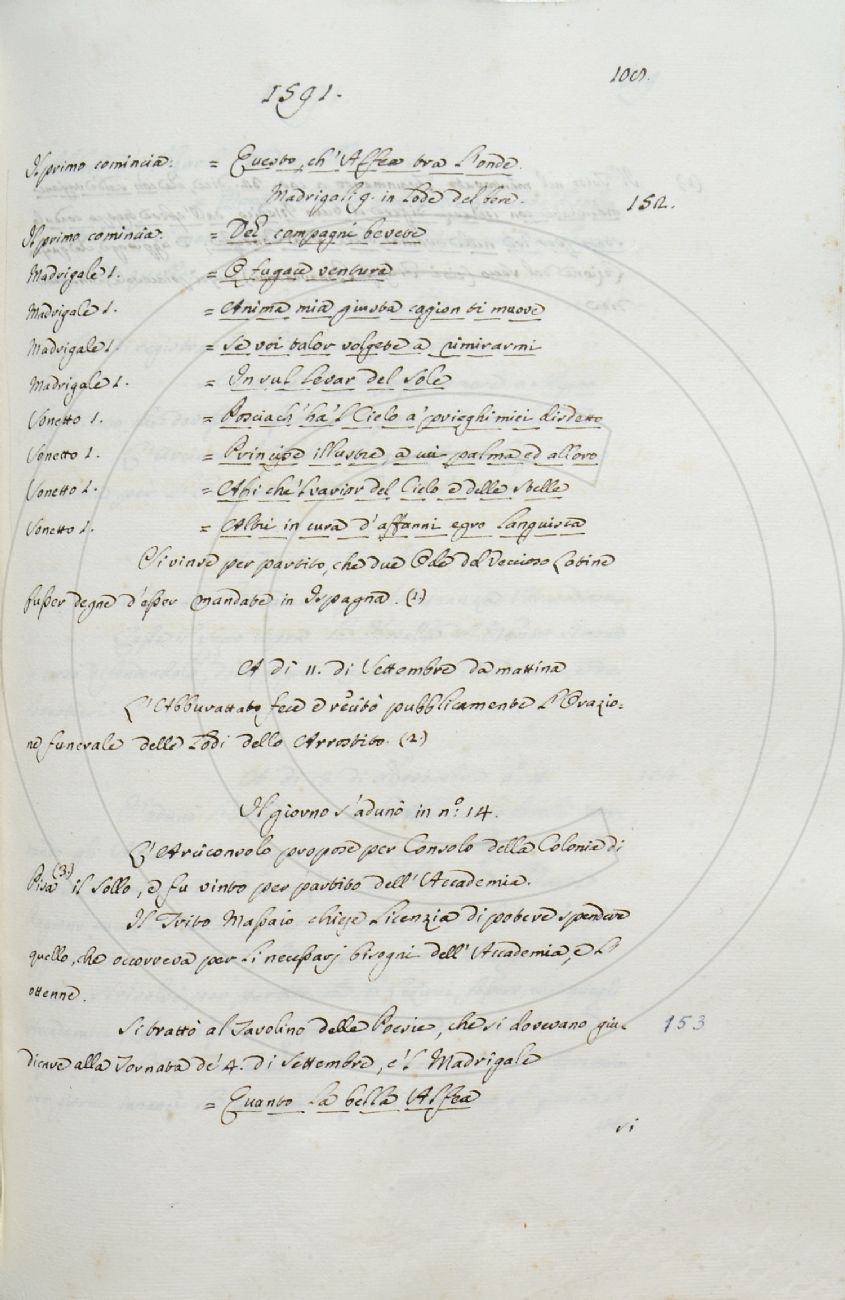 109.
1591.
Il primo comincia: = Questo, ch'Alfea tra l'onde.
Madrigali 9. in lode del bere. 152.
Il primo comincia: = Deh compagni bevete
Madrigale 1. = O fugace ventura
Madrigale 1. = Anima mia giusta cagion ti muove
Madrigale 1. = Se voi talor volgete a rimirarmi
Madrigale 1. = In sul levar del Sole
Sonetto 1. = Posciach'ha'l Cielo a' prieghi miei disdetto
Sonetto 1. = Principe illustre, a cui palma ed alloro
Sonetto 1. = Ahi che'l variar del Cielo e delle Stelle
Sonetto 1. = Altri in cura d'affanni egro languisca
Si vinse per partito, che due Ode del Veccioso Latine
fusser degne d'esser mandate in Ispagna. (1)
A dì 11. di Settembre da mattina
L'Abburattato fece e recitò pubblicamente l'Orazio=
ne funerale delle Lodi dello Arrostito. (2.)
Il giorno s'adunò in n.o 14.
L'Arciconsolo propose per Consolo della Colonia di
Pisa (3.) il Sollo, e fu vinto per partito dell'Accademia.
Il Trito Massaio chiese licenzia di potere spendere
quello, che occorreva per li necessarj bisogni dell'Accademia, e l'
ottenne.
Si trattò al Tavolino delle Poesie, che si dovevano giu= 153
dicare alla Tornata de' 4. di Settembre, e'l Madrigale
= Quanto la bella Alfea
si